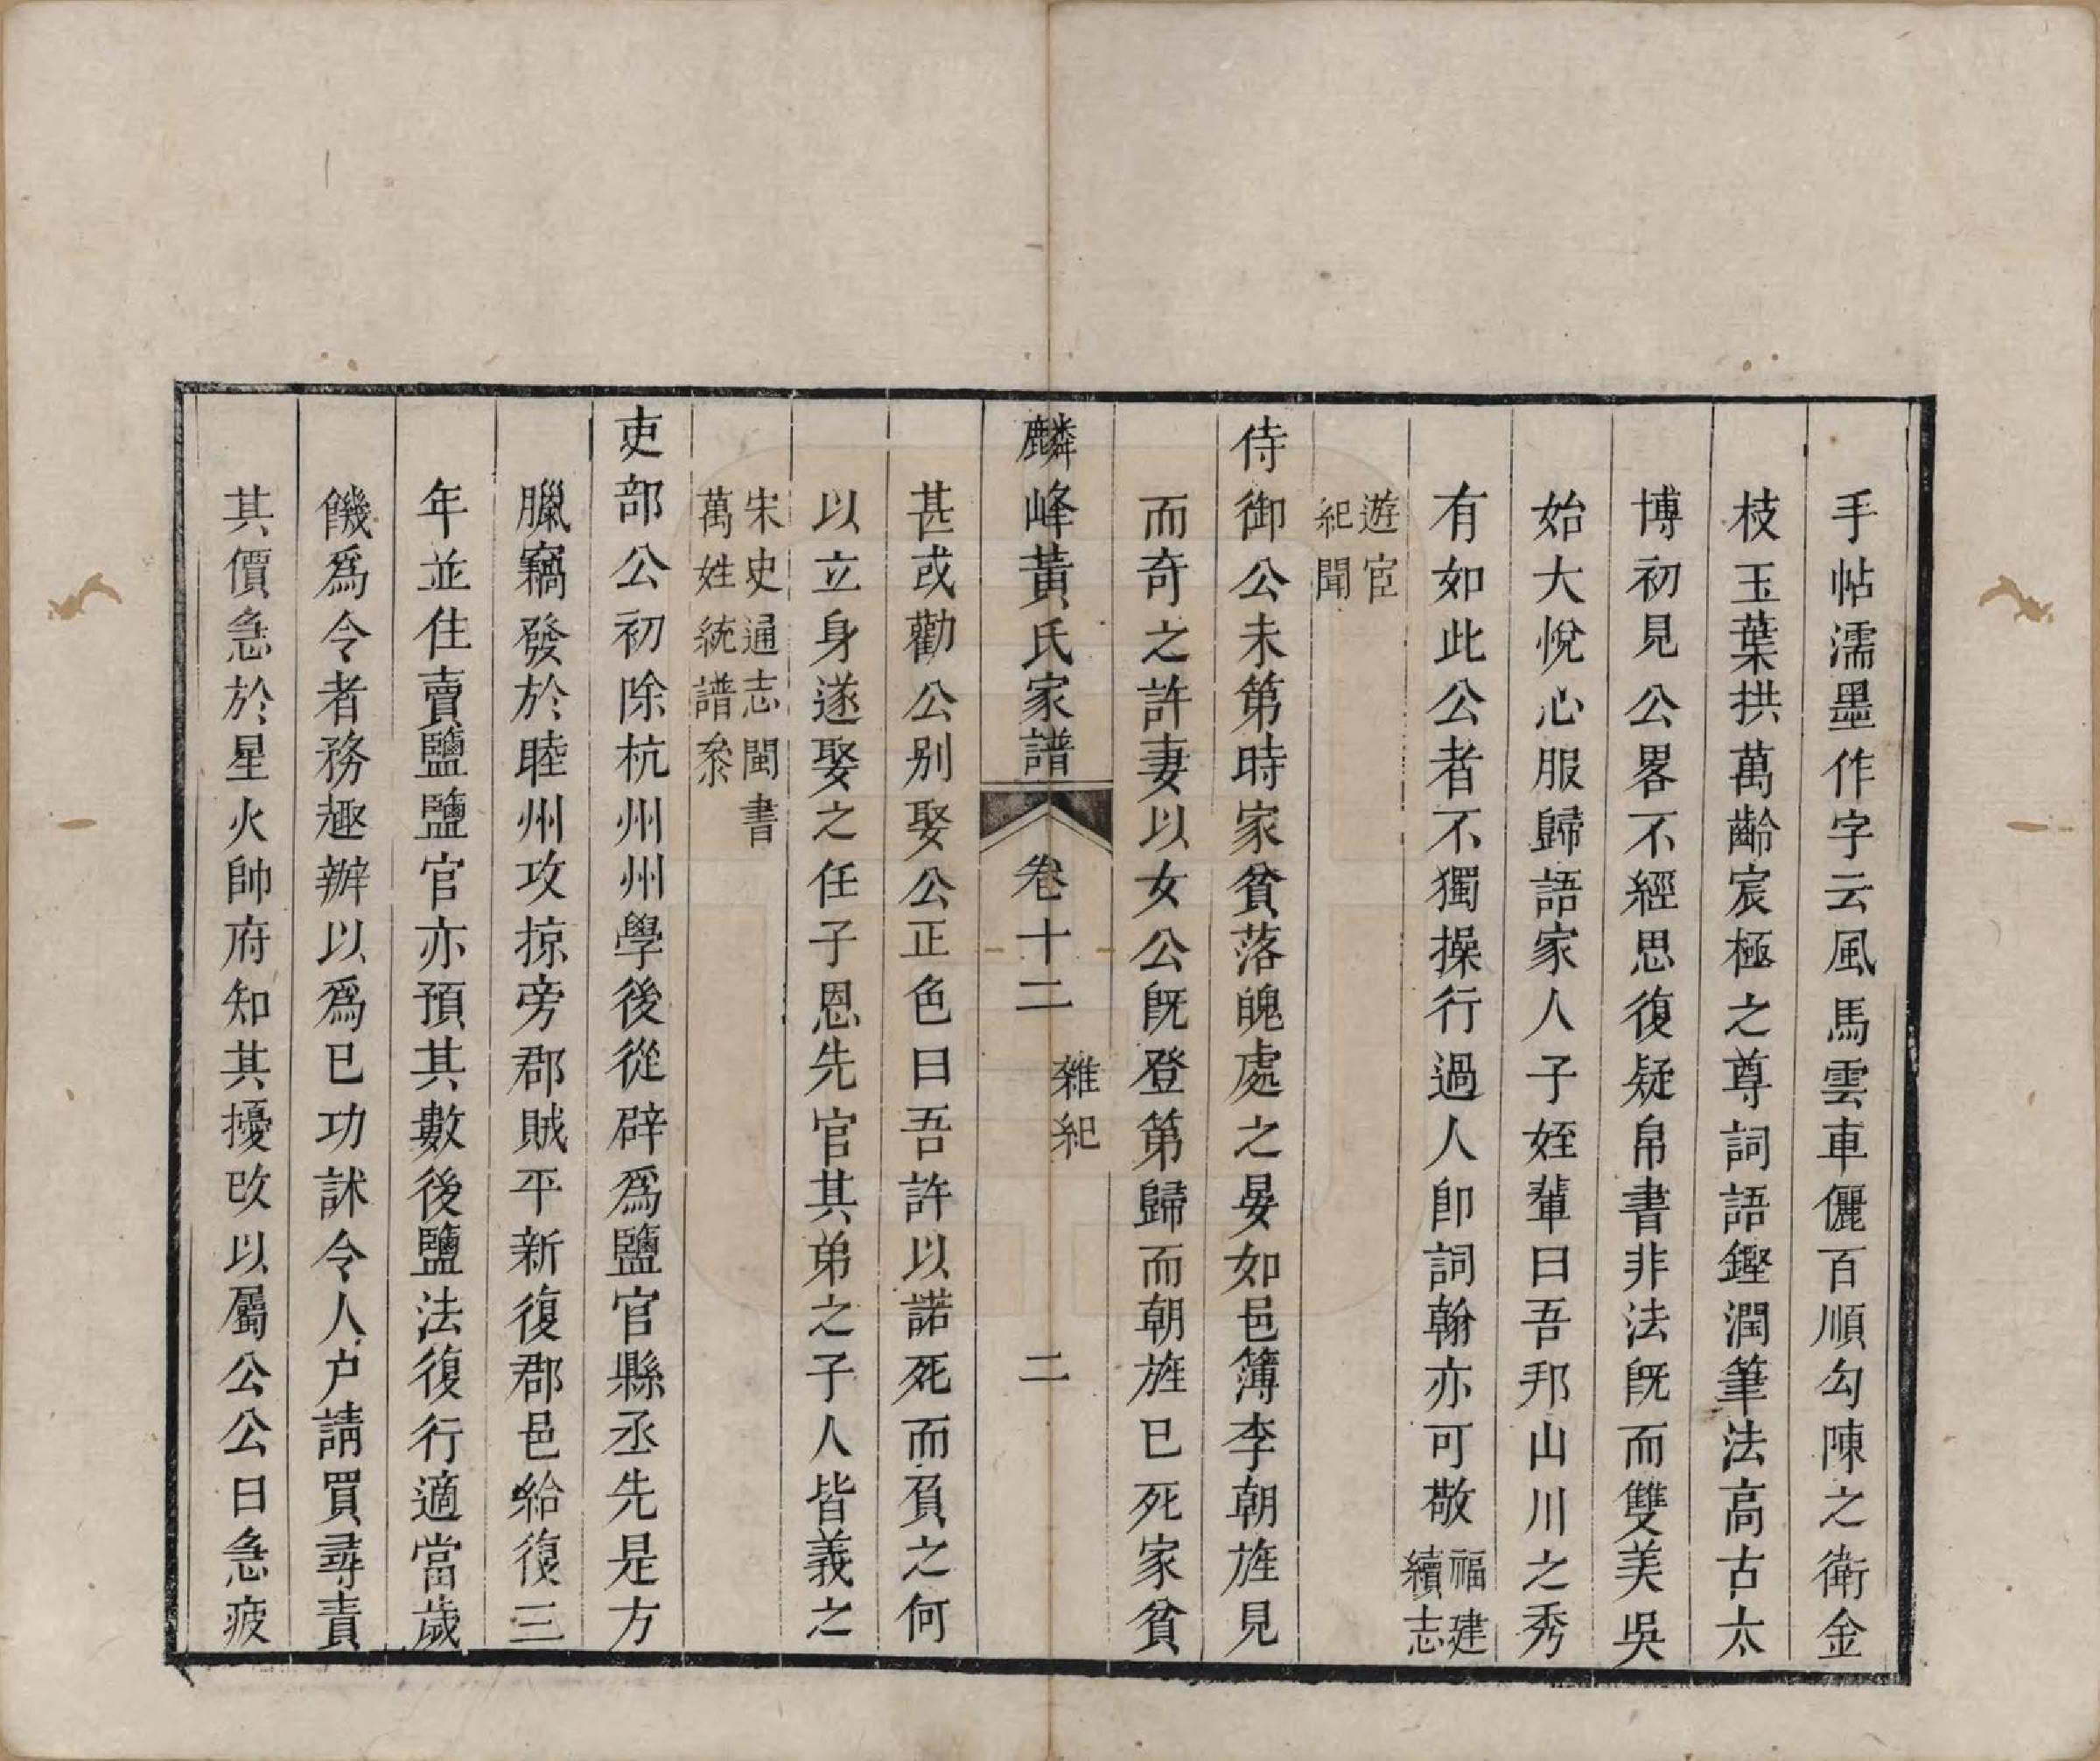 手帖濡墨作字云風馬雲車儷百順勾陳之衛金
枝玉葉拱萬齡宸極之尊詞語鏗潤筆法高古太
博初見公畧不經思復疑帛書非法旣而雙美吳
始大悅心服歸語家人子姪輩曰吾邦山川之秀
有如此公者不獨操行過人卽詞翰亦可敬福建續志
遊宦紀聞
侍御公未第時家貧落魄處之晏如邑簿李朝旌見
而奇之許妻以女公旣登第歸而朝旌已死家貧
麟峰黃氏家譜 卷十二 雜紀 二
甚或勸公别娶公正色曰吾許以諾死而負之何
以立身遂娶之任子恩先官其弟之子人皆義之
宋史通志閩書萬姓統譜叅
吏部公初除杭州州學後從辟爲鹽官縣丞先是方
臘竊發於睦州攻掠旁郡賊平新復郡邑給復三
年並住賣鹽鹽官亦預其數後鹽法復行適當歲
饑爲令者務趣辦以爲已功訹令人户請買尋責
其價急於星火帥府知其擾改以屬公公曰急疲